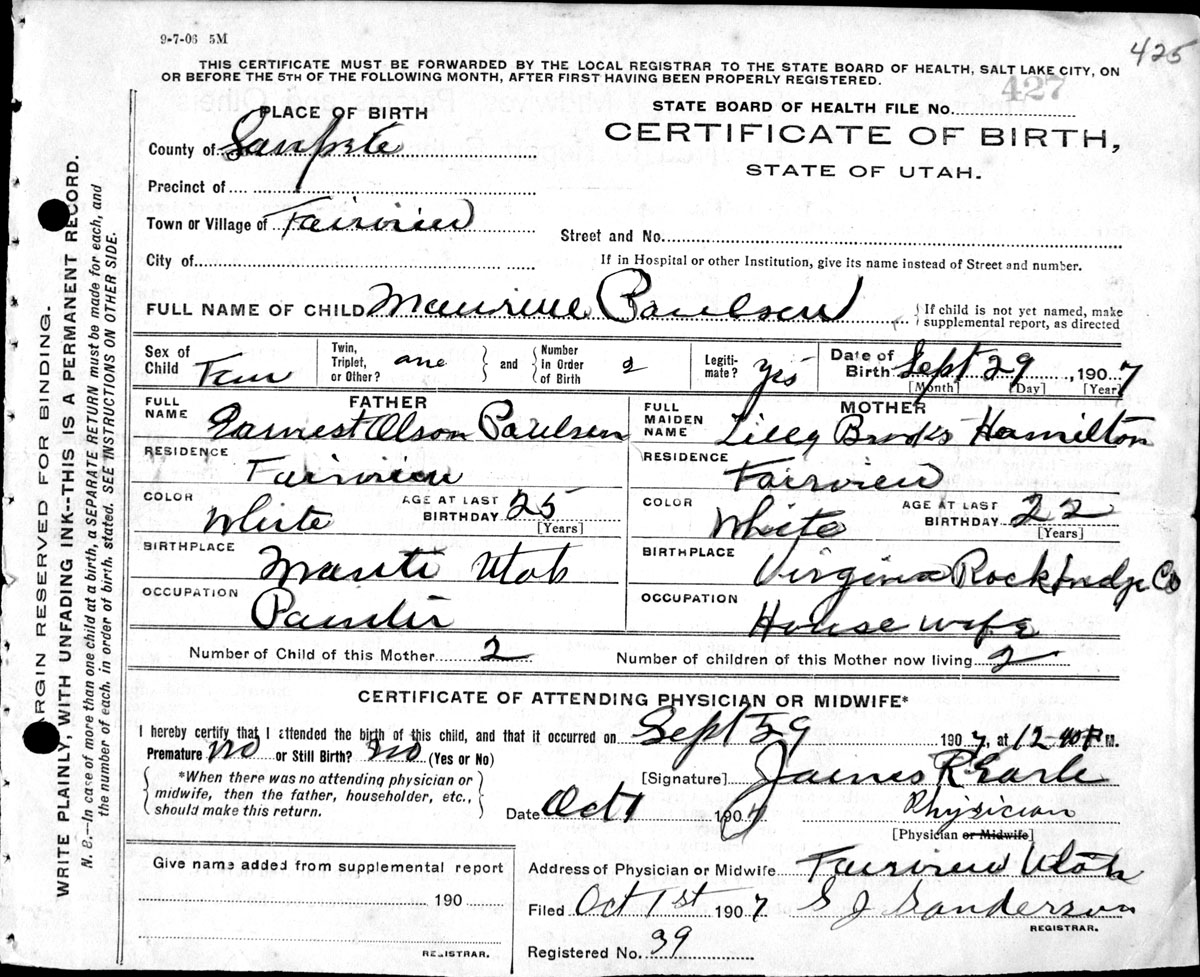 9-7-06 5M
425
THIS CERTIFICATE MUST BE FORWARDED BY THE LOCAL REGISTRAR TO THE STATE BOARD OF HEALTH, SALT LAKE CITY, ON
OR BEFORE THE 5TH OF THE FOLLOWING MONTH, AFTER FIRST HAVING BEEN PROPERLY REGISTERED.
427
STATE BOARD OF HEALTH FILE No.
PLACE OF BIRTH
CERTIFICATE OF BIRTH,
STATE OF UTAH.
County of Sanpete
Precinct of
Town or Village of Fairview
Street and No.
City of
If in Hospital or other Institution, give its name instead of Street and number.
FULL NAME OF CHILD Maurine Paulsen
If child is not yet named, make
supplemental report, as directed
Sex of Child Fem
Twin, Triplet, or Other? one and Number in Order of Birth 2
Legiti-mate? yes
Date of Birth Sept 29, 1907
[Month] [Day] [Year]
FATHER
FULL NAME Earnest Olson Paulsen
RESIDENCE Fairview
COLOR White
AGE AT LAST BIRTHDAY 25
[Years]
BIRTHPLACE Manti Utah
OCCUPATION Painter
MOTHER
FULL MAIDEN NAME Lilly Brooks Hamilton
RESIDENCE Fairview
COLOR White
AGE AT LAST BIRTHDAY 22
[Years]
BIRTHPLACE Virginia Rockbridge Co
OCCUPATION House wife
Number of Child of this Mother 2
Number of children of this Mother now living 2
CERTIFICATE OF ATTENDING PHYSICIAN OR MIDWIFE*
I hereby certify that I attended the birth of this child, and that it occurred on Sept 29 1907, at 12 40 P M.
Premature no or Still Birth? no (Yes or No)
*When there was no attending physician or
midwife, then the father, householder, etc.,
should make this return.
[Signature] James R Earle
Date Oct 1 1907
Physician
[Physician or Midwife]
Give name added from supplemental report
190
REGISTRAR.
Address of Physician or Midwife Fairview Utah
Filed Oct 1st 1907 S J Sanderson
REGISTRAR.
Registered No. 39
ARGIN RESERVED FOR BINDING.
WRITE PLAINLY, WITH UNFADING INK--THIS IS A PERMANENT RECORD.
N. B.—In case of more than one child at a birth, a SEPARATE RETURN must be made for each, and
the number of each, in order of birth, stated. SEE INSTRUCTIONS ON OTHER SIDE.